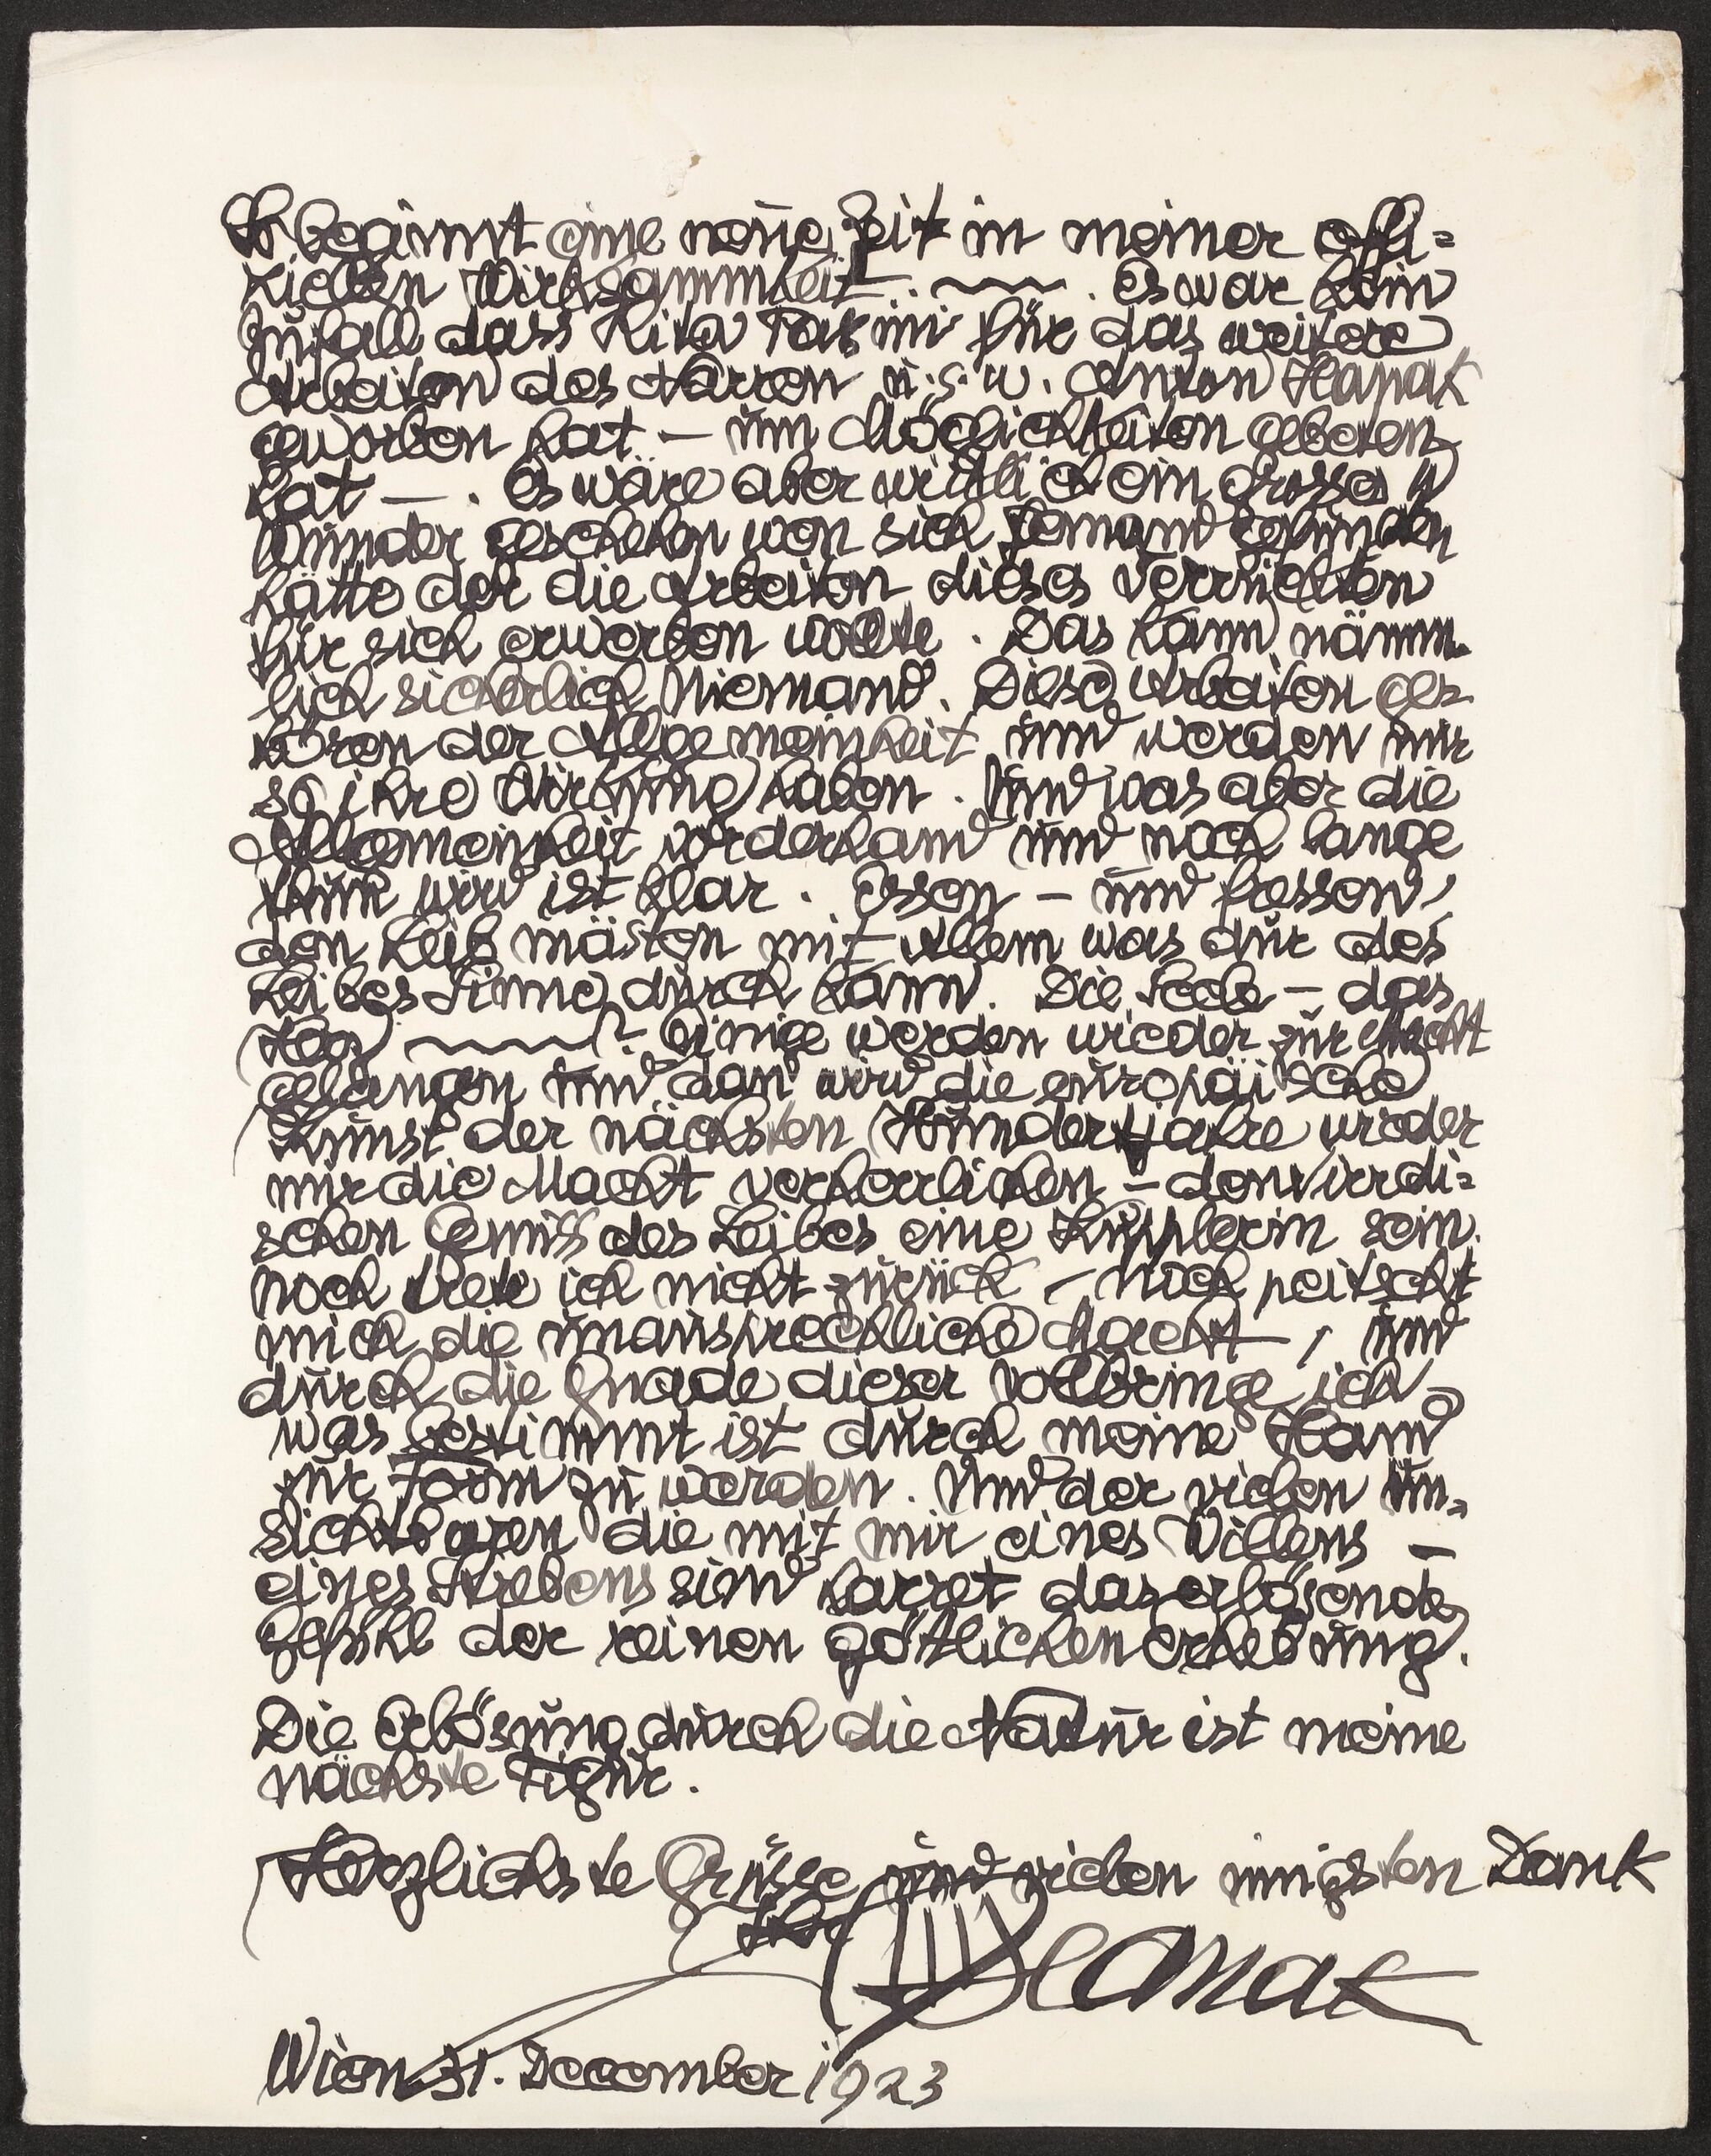 So beginnt eine neue Zeit in meiner offi=
ziellen Wirksammkeit .. ~~~ . Es war kein
Zufall dass für das weitere
Arbeiten des Narren u. s. w. Anton Hanak
geworben hat — um Möglichkeiten geboten
hat — . Es wäre aber wirklich ein grosses
Wunder geschehen wen sich Jemand gefunden
hätte der die Arbeiten dieses Verrückten
für sich erwerben wollte . Das kann nämm-
lich sicherlich Niemand. Diese Arbeiten ge=
hören der Allgemeinheit und werden nur
so ihre Wirkung haben . Und was aber die
Allgemeinheit vorderhand und noch lange
thun wird ist klar . Essen – und fressen,
den Leib mästen mit Allem was nur des
Leibes Sinne durch kann. Die Seele – das
Herz ~~~? Einige werden wieder zur Macht
gelangen und dan wird die europäische
Kunst der nächsten Hundertjahre wieder
nur die Macht verherrlichen – den irrdi=
schen Genuss des Leibes eine Kupplerin sein.
Noch trete ich nicht zurück – noch peitscht
mich die unaussprechliche Macht – , und
durch die Gnade dieser vollbringe ich
was bestimmt ist durch meine Hand
zur Form zu werden. Und der vielen Un=
sichtbaren die mit mir eines Willens –
eines Strebens sind harret das erlösende
Gefühl der reinen göttlichen Erhebung.
Die Erlösung durch die Natur ist meine
nächste Figur.
Herzlichste Grüsse und vielen innigsten Dank
Ihr Hanak
Wien 31. December 1923